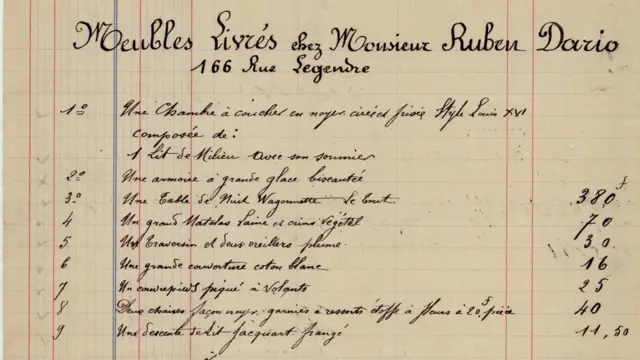 Meubles Livrés chez Monsieur Ruben Dario
166 Rue Legendre
1º Une Chambre à coucher en noyer ciré et frisé Style Louis XVI
composée de :
1 Lit de Milieu avec son sommier
2º Une armoire à grande glace biseautée
3º Une Table de Nuit Wagonnette Le Tout 380 f
4 Un grand Matelas Laine et crins Végétal 70
5 Un Traversin et deux oreillers plume. 30
6 Une grande couverture coton blanc 16
7 Un couvrepieds piqué à Volants 25
8 Deux chaises façon noyer, garnies à ressorts étoffe à fleurs à 20f pièce 40
9 Une descente de Lit Jacquart frangé 11,50